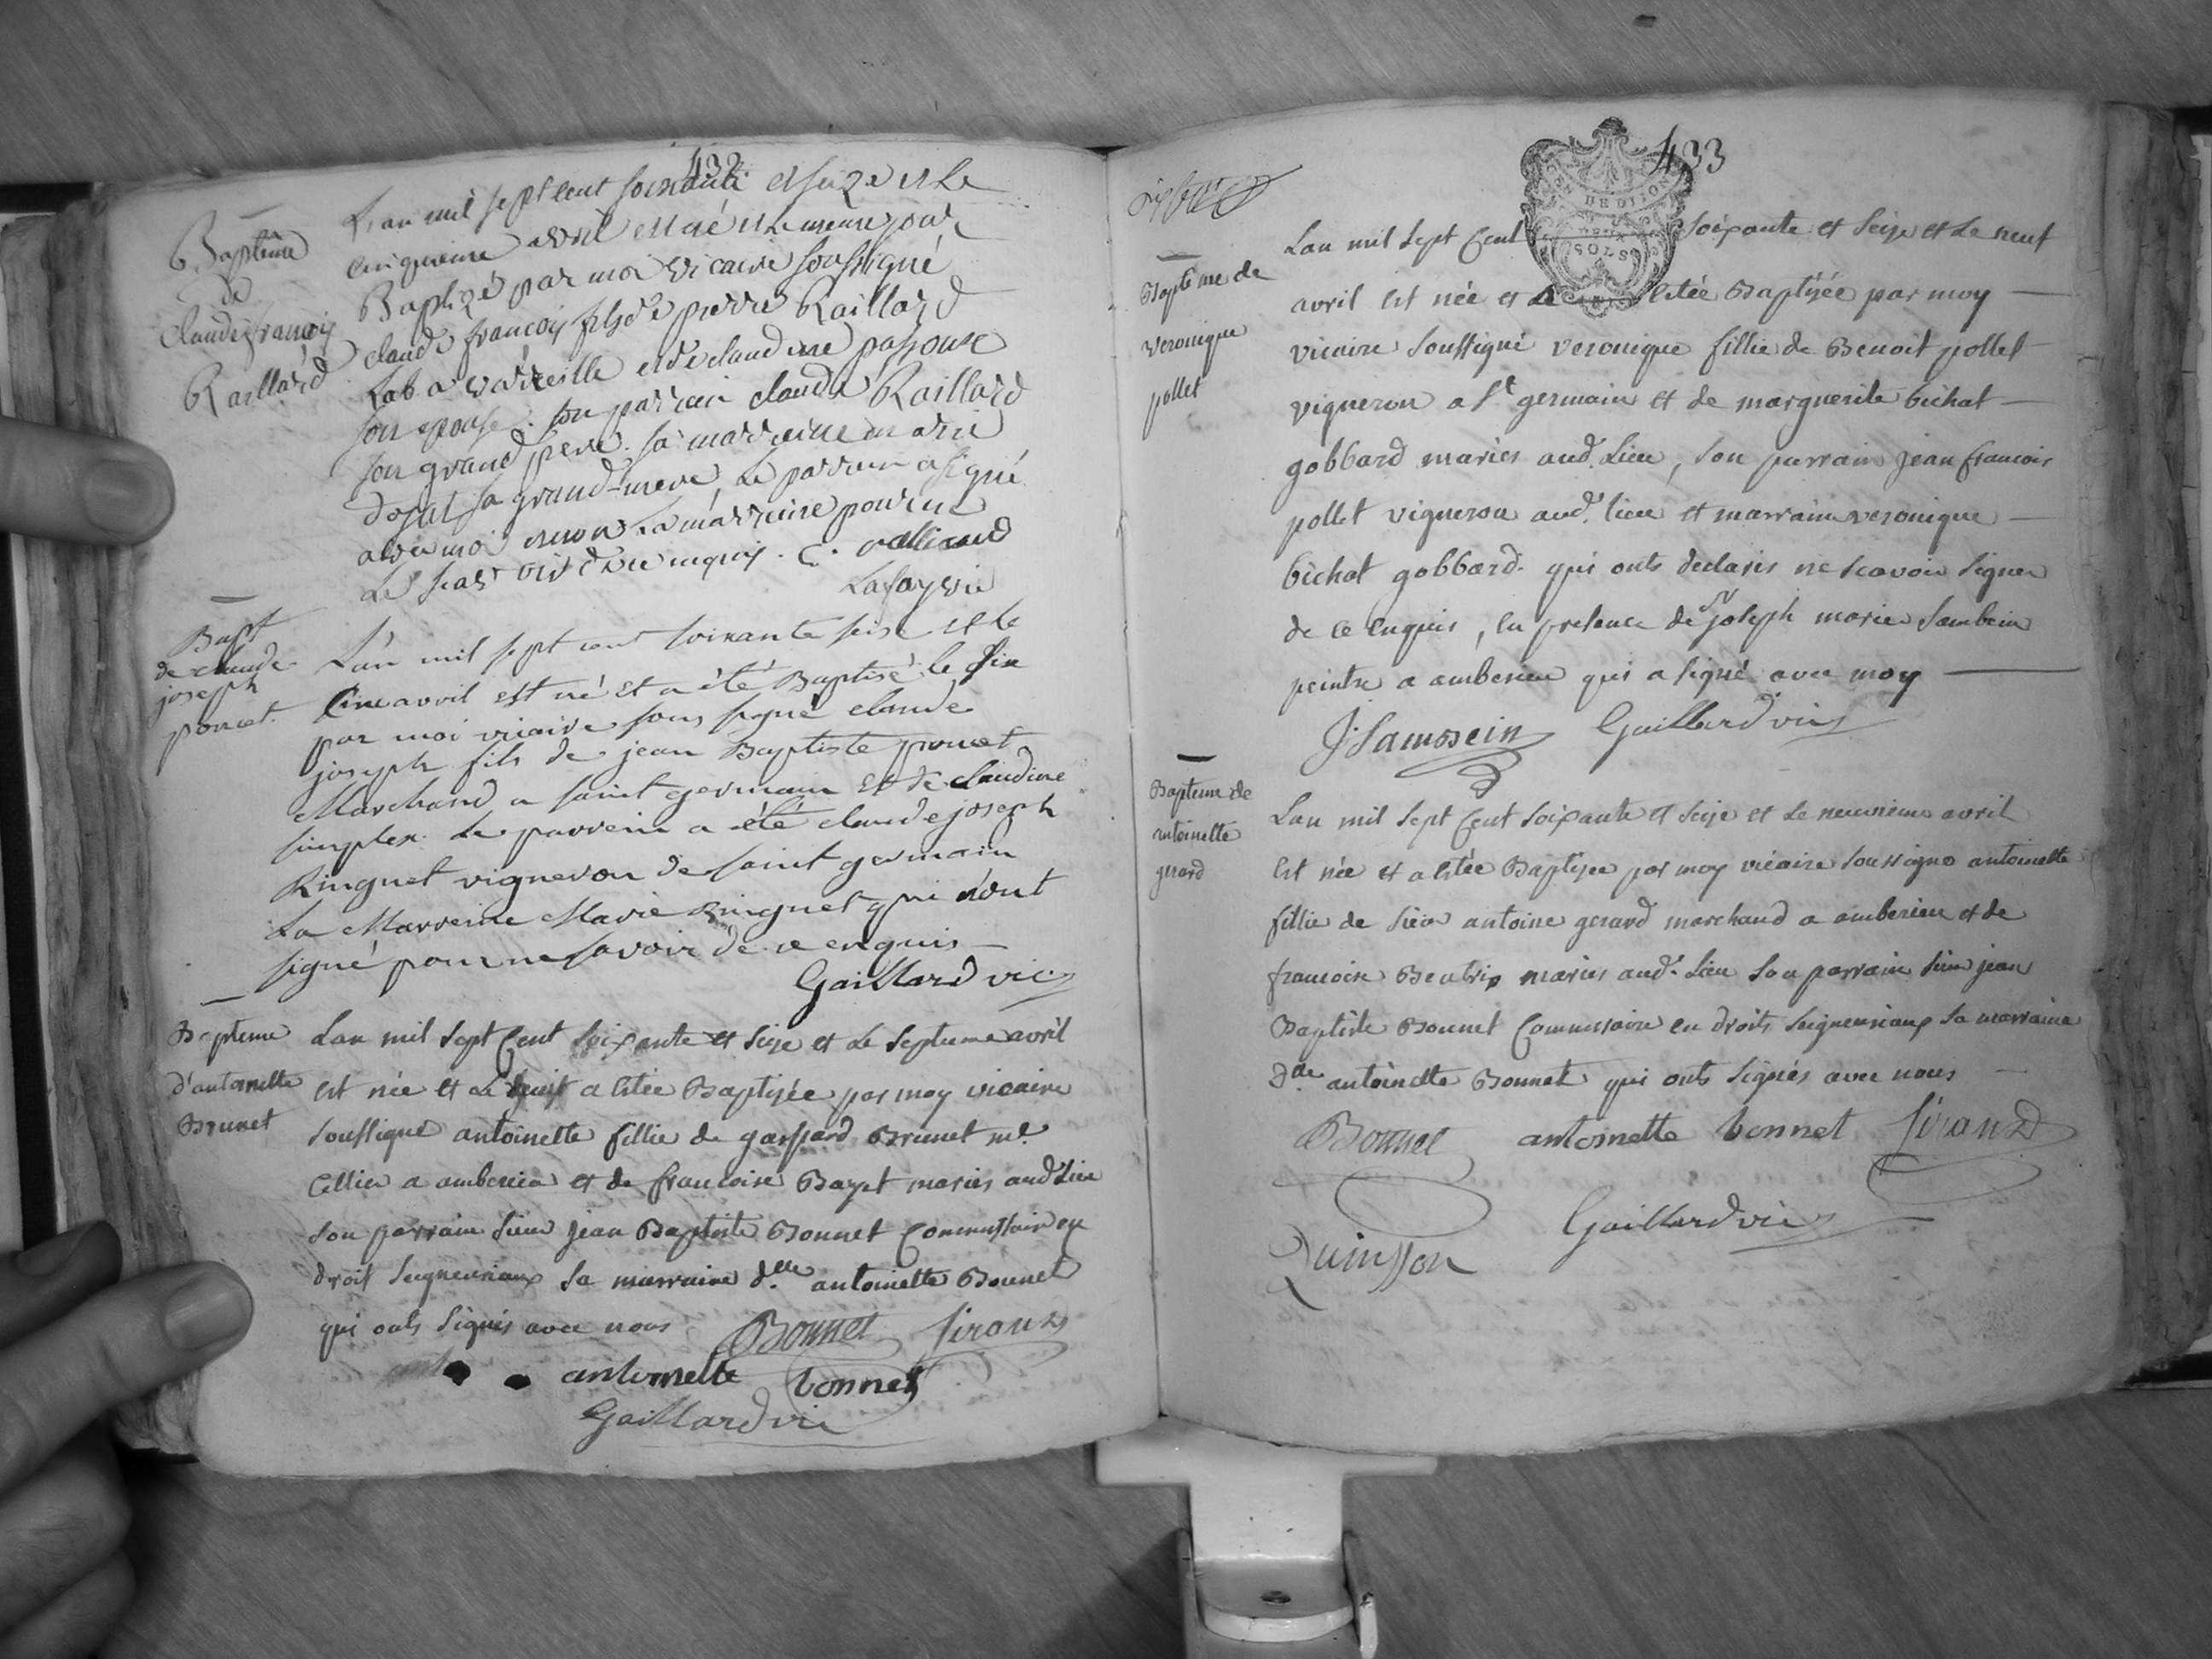 432
Baptême
de
claude francois
Raillard
L'an mil sept cent soixante et seize et le
cinquieme avril est né et le meme jour
Baptizé par moi vicaire soussigné
claude francois fils de pierre Raillard
Lab a vareille et de claudine
son epouse. son parrain claude Raillard
son grand pere. sa marreine marie
sa grand-mere, Le parrain a signé
avec moi et non La marreine pour ne
Le de ce enquis. C. raillard
Bapt
de claude
joseph
poncet.
L'an mil sept cent soixante seise et le
cinc avril est né et a été Baptisé le six
par moi vicaire sous signé claude
joseph fils de jean Baptiste poncet
Marchand a saint germain et de claudine
simplex. Le parrein a été claude joseph
Ringuet vigneron de saint germain
La Marreine Marie Ringuet qui n'ont
signé pour ne savoir de ce enquis —
Gaillard vic
Bapteme
d'antoinette
Brunet
Lan mil sept Cent soixante et seize et Le septieme avril
est née et Le huit a estée Baptisée par moy vicaire
soussigné antoinette fillie de gaspard Brunet md
Cellier a amberieu et de francoise Bayet mariés aud Lieu
son parrain sieur jean Baptiste Bonnet Commissaire en
droit seigneuriaux sa marraine dlle antoinette Bonnet
qui onts signés avec nous Bonnet sirand
antoinette bonnet
Gaillard vic
433
GEN DE DIJON
DEUX
SOLS
Bapteme de
veronique
pollet
Lan mil sept Cent soixante et seize et Le neuf
avril est née et a estée Baptisée par moy —
vicaire soussigné veronique fillie de Benoit pollet
vigneron a st germain et de marguerite bichat —
gobbard mariés aud. Lieu, son parrain jean francois
pollet vigneron aud. lieu et marraine veronique —
bichat gobbard. qui onts declarés ne scavoir signer
de ce enquis, en presence de sr joseph marie sambein
peintre a amberieu qui a signé avec moy —
J. Sambein Gaillard vic
Bapteme de
antoinette
gerard
Lan mil sept Cent soixante et seize et Le neuvieme avril
est née et a estée Baptisée par moy vicaire soussigné antoinette
fillie de sieur antoine gerard marchand a amberieu et de
francoise Beatrix mariés aud. Lieu son parrain sieur jean
Baptiste Bonnet Commissaire en droits seigneuriaux sa marraine
dlle antoinette Bonnet qui onts signés avec nous —
Bonnet antoinette bonnet sirand
Gaillard vic
Quinsson